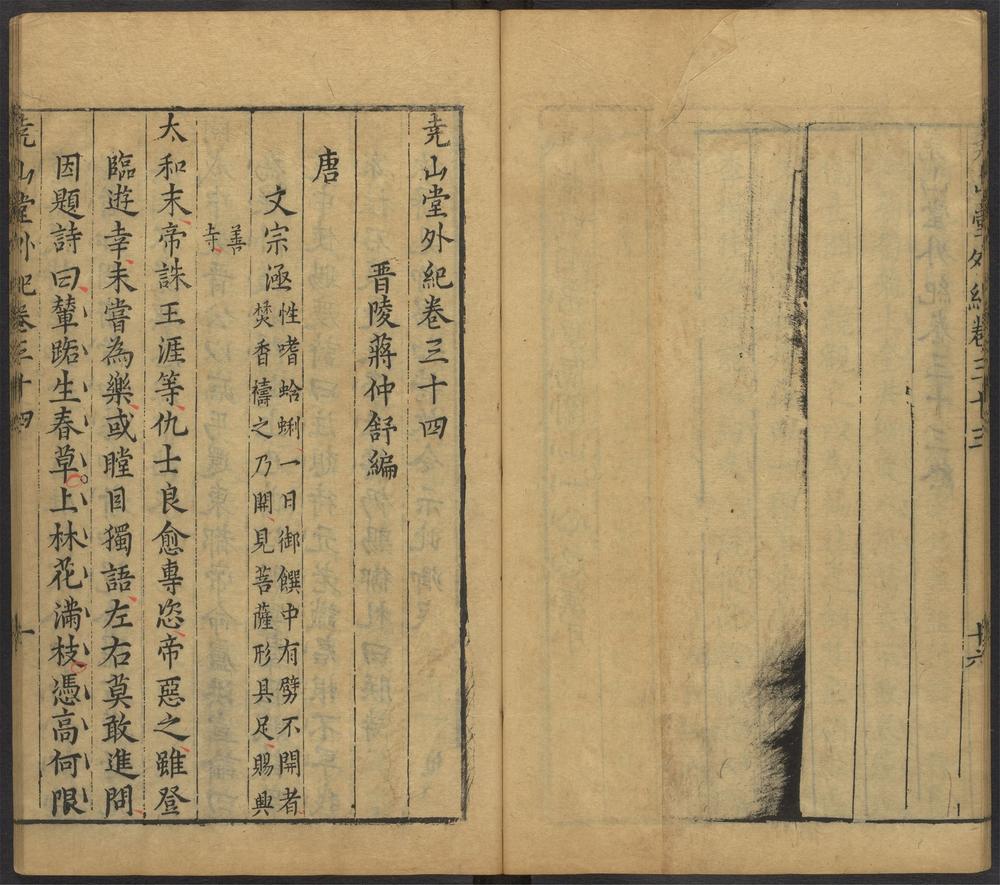 堯山堂外紀卷三十三
十六
堯山堂外紀卷三十四
晉陵蔣仲舒編
唐
文宗涵
性嗜蛤蜊一日御饌中有劈不開者
焚香禱之乃開見菩薩形具足賜興
善
寺
太和末帝誅王涯等仇士良愈專恣帝惡之雖登
臨遊幸未嘗為樂或瞠目獨語左右莫敢進問
因題詩曰輦路生春草上林花滿枝憑高何限
堯山堂外紀卷三十四
一